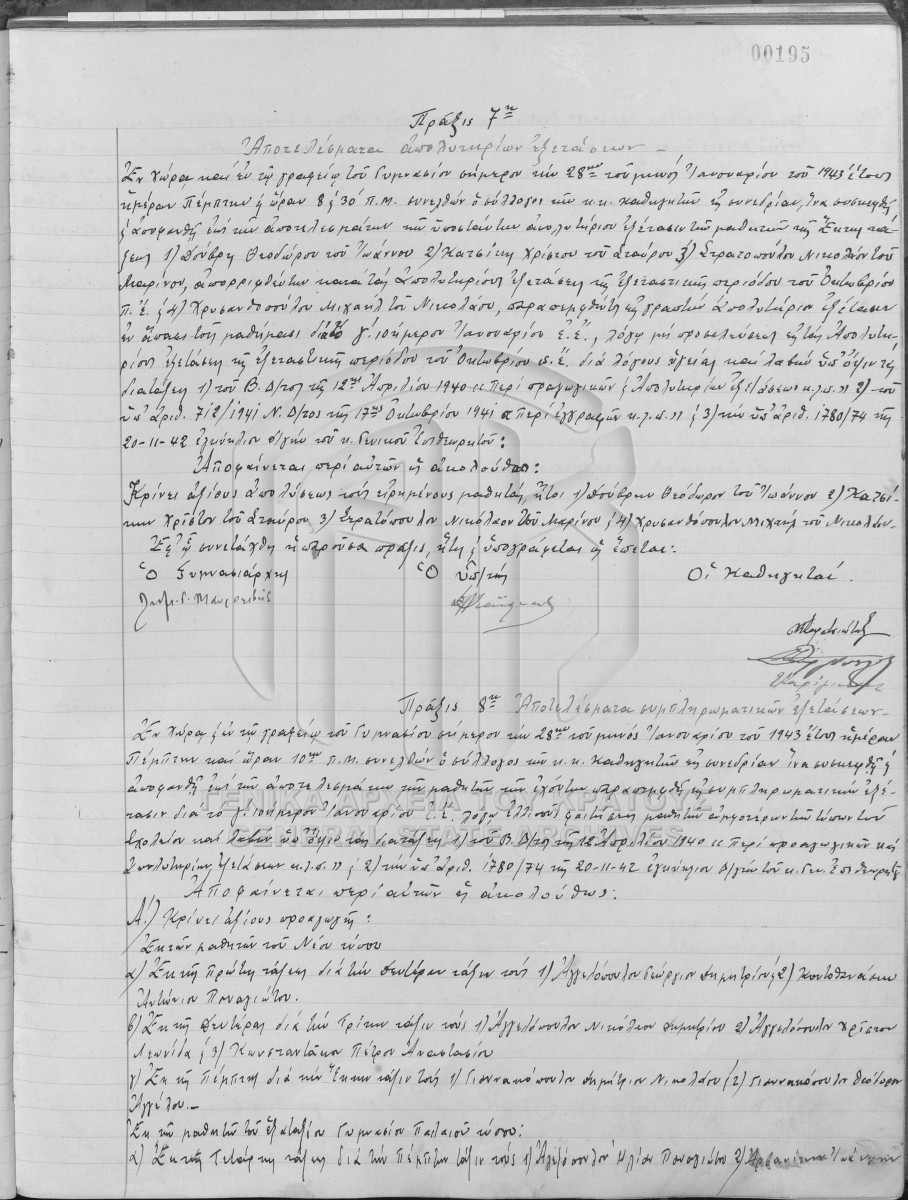 00195
Πρᾶξις 7η
Ἀποτελέσματα ἀπολυτηρίων ἐξετάσεων –
Ἐν Χώρᾳ καὶ ἐν τῷ γραφείῳ τοῦ Γυμνασίου σήμερον τὴν 28ην τοῦ μηνὸς Ἰανουαρίου τοῦ 1943 ἔτους
ἡμέραν Πέμπτην ἢ ὥραν 8 ξ 30' π.μ. συνελθὼν ὁ σύλλογος τῶν κ.κ. καθηγητῶν εἰς συνεδρίαν, ἵνα συσκεφθῇ
ξ ἀποφανθῇ ἐπὶ τῶν ἀποτελεσμάτων τῶν ὑποστάντων ἀπολυτήριον ἐξέτασιν τῶν μαθητῶν τῆς Ἕκτης τά-
ξεως 1) Δούβρη Θεοδώρου τοῦ Ἰωάννου 2) Κατσίκη Χρίστου τοῦ Σταύρου 3) Στρατοπούλου Νικολάου τοῦ
Μαρίνου, ἀπορριφθέντων κατὰ τὰς ἀπολυτηρίους ἐξετάσεις τῆς ἐξεταστικῆς περιόδου τοῦ Ὀκτωβρίου
π.ἔ. ξ 4) Χρυσανθοπούλου Μιχαὴλ τοῦ Νικολάου, παραπεμφθέντος εἰς γραπτὴν ἀπολυτήριον ἐξέτασιν
ἐν ἅπασι τοῖς μαθήμασι διὰ τὸ γ' 10ήμερον Ἰανουαρίου ἐ.ἔ., λόγῳ μὴ προσελεύσεως εἰς τὰς ἀπολυτη-
ρίους ἐξετάσεις τῆς ἐξεταστικῆς περιόδου τοῦ Ὀκτωβρίου π.ἔ. διὰ λόγους ὑγείας καὶ λαβὼν ὑπ' ὄψιν τὰς
διατάξεις 1) τοῦ Β.Δ/τος τῆς 12ης Ἀπριλίου 1940 «Περὶ προαγωγικῶν ξ ἀπολυτηρίων ἐξετάσεων κ.λ.π.» 2) τοῦ
ὑπ' ἀριθ. 712/1941 Ν.Δ/τος τῆς 17ης Ὀκτωβρίου 1941 «περὶ ἐγγραφῶν κ.λ.π.» ξ 3) τὴν ὑπ' ἀριθ. 1780/74 τῆς
20-11-42 ἐγκύκλιον δ/γὴν τοῦ κ. Γενικοῦ Ἐπιθεωρητοῦ:
Ἀποφαίνεται περὶ αὐτῶν ὡς ἀκολούθως:
Κρίνει ἀξίους ἀπολύσεως τοὺς εἰρημένους μαθητάς, ἤτοι 1) Δούβρην Θεόδωρον τοῦ Ἰωάννου 2) Κατσί-
κην Χρῖστον τοῦ Σταύρου 3) Στρατόπουλον Νικόλαον τοῦ Μαρίνου ξ 4) Χρυσανθόπουλον Μιχαὴλ τοῦ Νικολάου.
Ἐφ' ᾧ συνετάχθη ἡ παροῦσα πρᾶξις, ἥτις ξ ὑπογράφεται ὡς ἕπεται:
Ὁ Γυμνασιάρχης Ὁ ὑπ/τής Οἱ Καθηγηταί.
Πρᾶξις 8η Ἀποτελέσματα συμπληρωματικῶν ἐξετάσεων –
Ἐν Χώρᾳ ξ ἐν τῷ γραφείῳ τοῦ Γυμνασίου σήμερον τὴν 28ην τοῦ μηνὸς Ἰανουαρίου τοῦ 1943 ἔτους ἡμέραν
Πέμπτην καὶ ὥραν 10ην π.μ. συνελθὼν ὁ σύλλογος τῶν κ.κ. καθηγητῶν εἰς συνεδρίαν ἵνα συσκεφθῇ ξ
ἀποφανθῇ ἐπὶ τῶν ἀποτελεσμάτων τῶν μαθητῶν τῶν ἐχόντων παραπεμφθῇ εἰς συμπληρωματικὴν ἐξέ-
τασιν διὰ τὸ γ' 10ήμερον Ἰανουαρίου ἐ.ἔ. λόγῳ ἐλλιποῦς φοιτήσεως μαθητῶν ἀμφοτέρων τῶν τύπων τῶν
Σχολείων καὶ λαβὼν ὑπ' ὄψιν τὰς διατάξεις 1) τοῦ Β.Δ/τος τῆς 12 Ἀπριλίου 1940 «Περὶ προαγωγικῶν καὶ
ἀπολυτηρίων ἐξετάσεων κ.λ.π.» ξ 2) τὴν ὑπ' ἀριθ. 1780/74 τῆς 20-11-42 ἐγκύκλιον δ/γὴν τοῦ κ. Γεν. Ἐπιθεωρητοῦ
Ἀποφαίνεται περὶ αὐτῶν ὡς ἀκολούθως:
Α'.) Κρίνει ἀξίους προαγωγῆς:
Ἐκ τῶν μαθητῶν τοῦ Νέου τύπου
α) Ἐκ τῆς Πρώτης τάξεως διὰ τὴν Δευτέραν τάξιν τοὺς 1) Ἀγγελόπουλον Γεώργιον Δημητρίου ξ 2)
Ἀντώνιον Παναγιώτου.
β) Ἐκ τῆς Δευτέρας διὰ τὴν Τρίτην τάξιν τοὺς 1) Ἀγγελόπουλον Νικόλαον Δημητρίου 2) Ἀγγελόπουλον Χρῖστον
Λεωνίδα ξ 3) Κωνσταντάκον Πέτρον Ἀναστασίου
γ) Ἐκ τῆς Πέμπτης διὰ τὴν Ἕκτην τάξιν τοὺς 1) Γιαννακόπουλον Δημήτριον Νικολάου ξ 2) Γιαννακόπουλον Θεόδωρον
Ἀγγέλου.–
Ἐκ τῶν μαθητῶν τοῦ ἑξαταξίου Γυμνασίου Παλαιοῦ τύπου:
α) Ἐκ τῆς Τετάρτης τάξεως διὰ τὴν Πέμπτην τάξιν τοὺς 1) Ἀγγελόπουλον Ἠλίαν Παναγιώτου 2)
ΓΕΝΙΚΑ ΑΡΧΕΙΑ ΤΟΥ ΚΡΑΤΟΥΣ
GENERAL STATE ARCHIVES